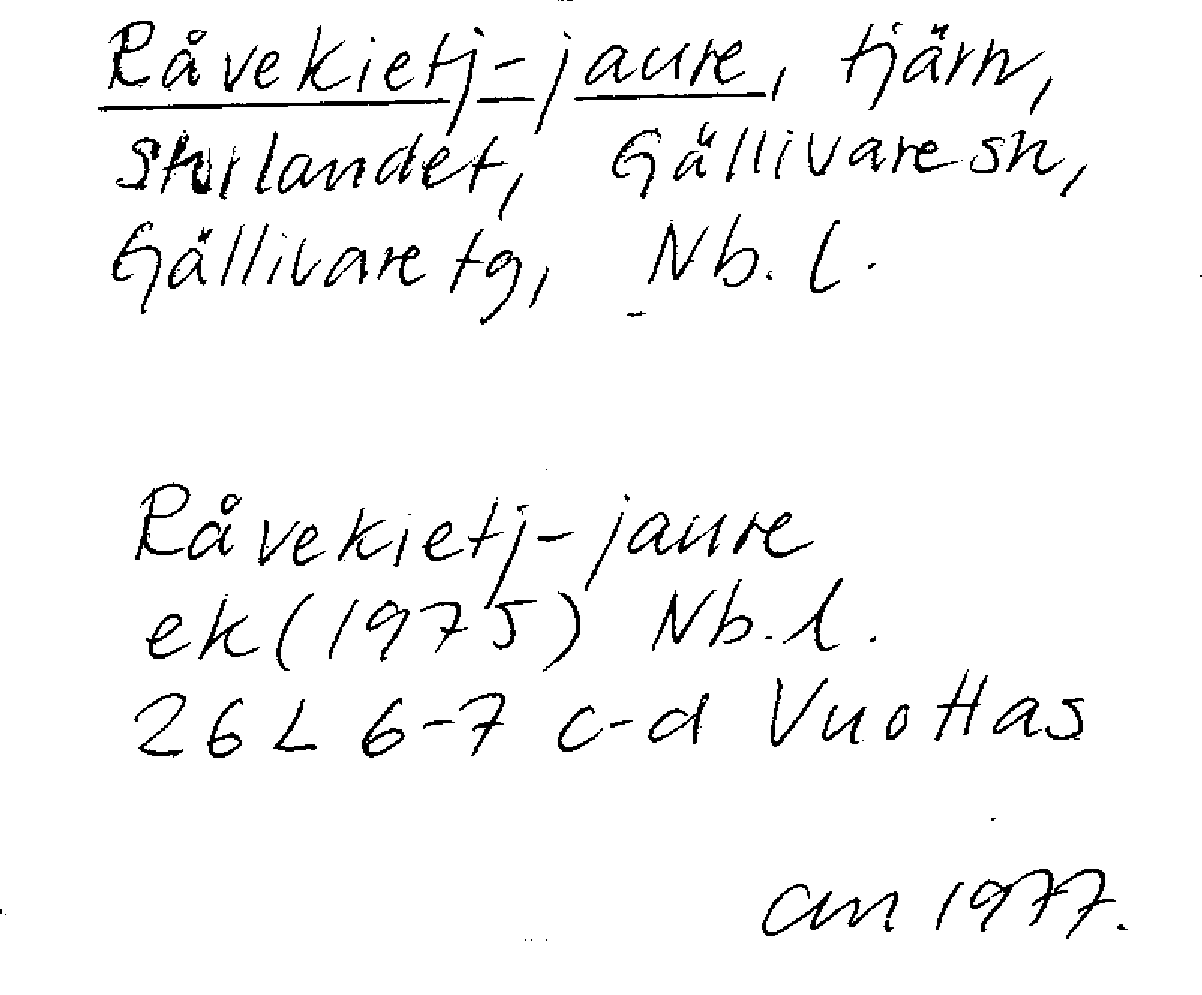 Råvekietj-jaure, tjärn,
Storlandet, Gällivare sn,
Gällivare tg, Nb. l.
Råvekietj-jaure
ek (1975) Nb. l.
26 L 6-7 c-d Vuottas
an 1977.